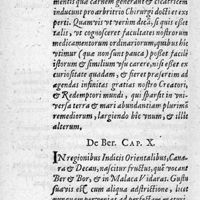 muna quæ carnem generant & cicatricem
inducunt pro arbitrio Chirurgi doctè et ex
perti. Quamvis ut verim dotã, si quis esset
talis, ut cognosceret facultates nostrorum
medicamentorum ordinariorum, quibus hic
utimur (quæ nonsunt pauca) posset facilè
istorum & similium usu carere, nisi esset ex
curiositate quadam, & fieret præsertim a
gendas infinitas gratias nostro Creatori,
& Redemptori mundi, qui sparsit in uni-
versa terra & mari abundantiam plurimũ
remediorum, largiendo hic unum, & illic
alterum,
De Ber. CAP. X.
IN regionibus Indicis Orientalibus, Cana-
ra & Decan, nascitur fructus, quẽ vocant
Ber & Bor, & in Malaca Vidaras. Gustu
suavis est cum aliqua adstrictione, licet